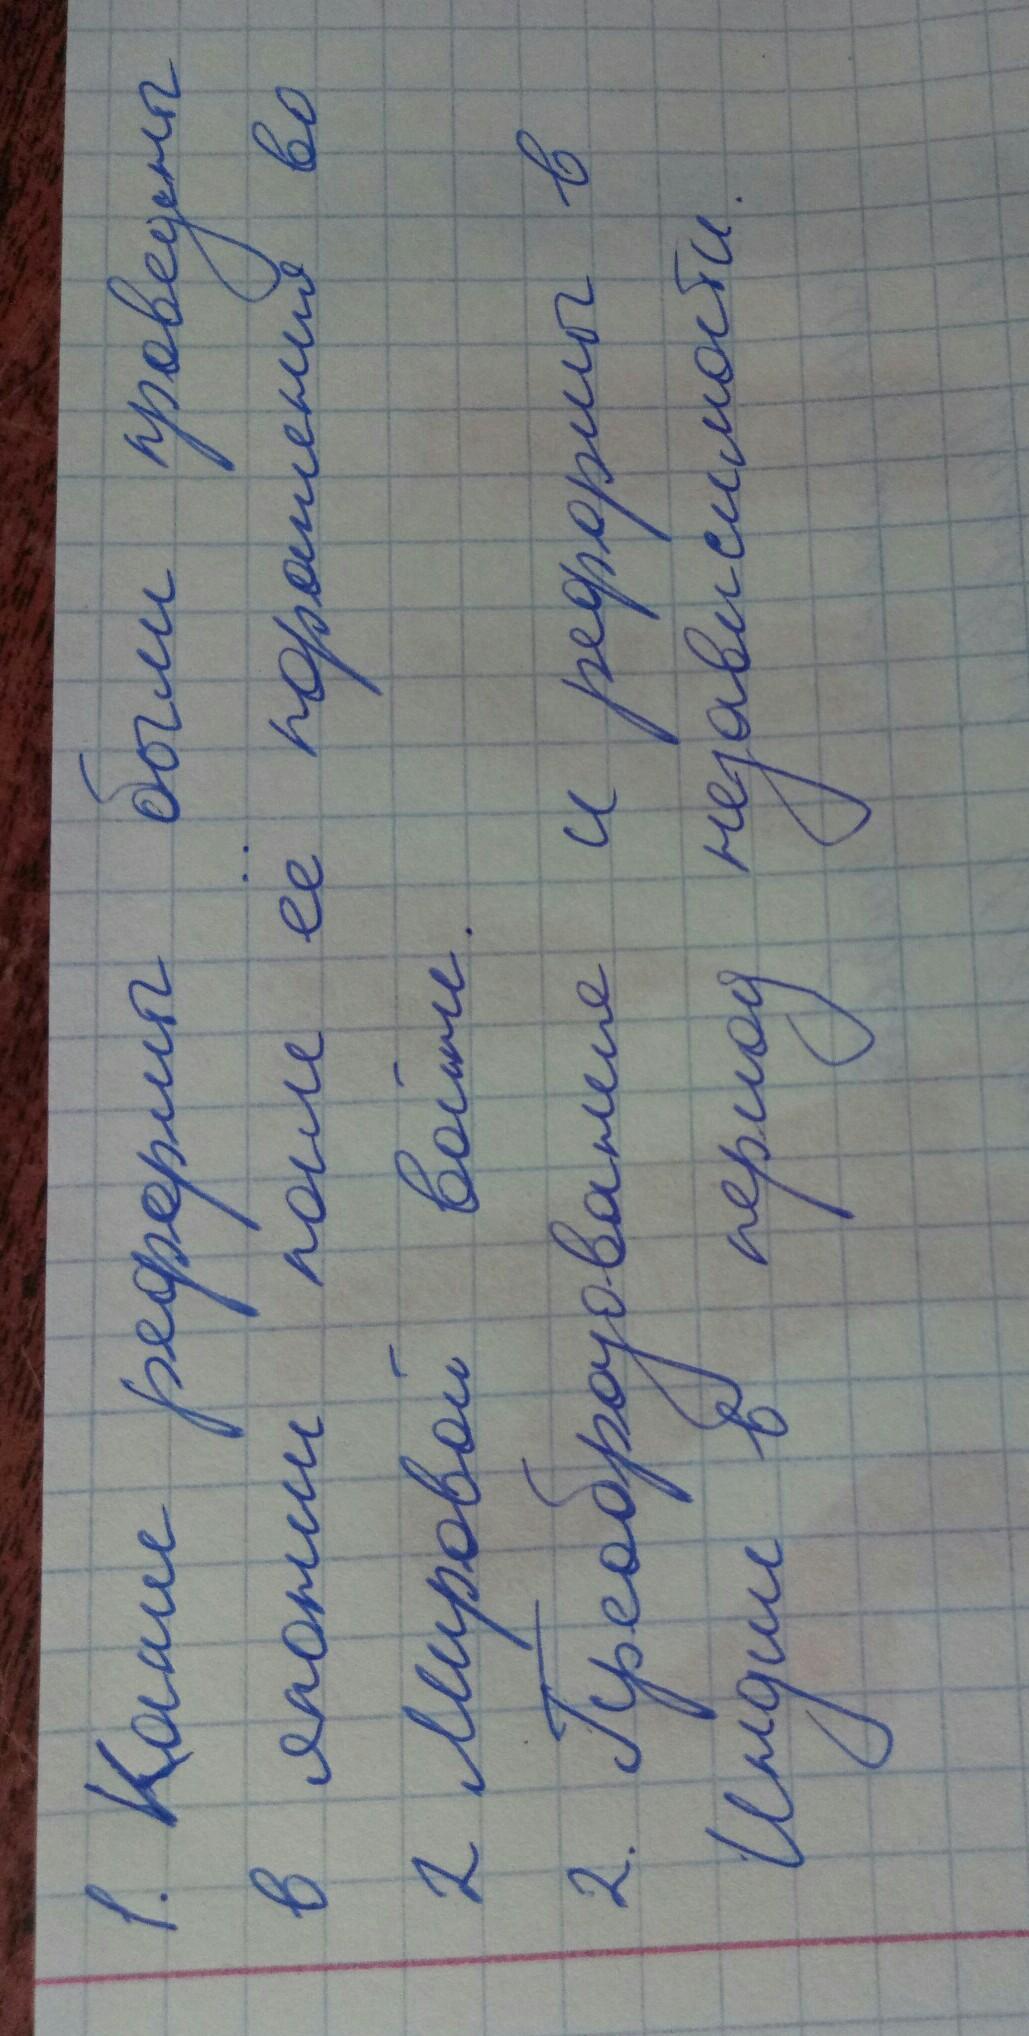 1. Какие реформы были проведены
в японии после её поражения во
2 Мировой войне.
2. Преобразование и реформы в
Индии в период независимости.